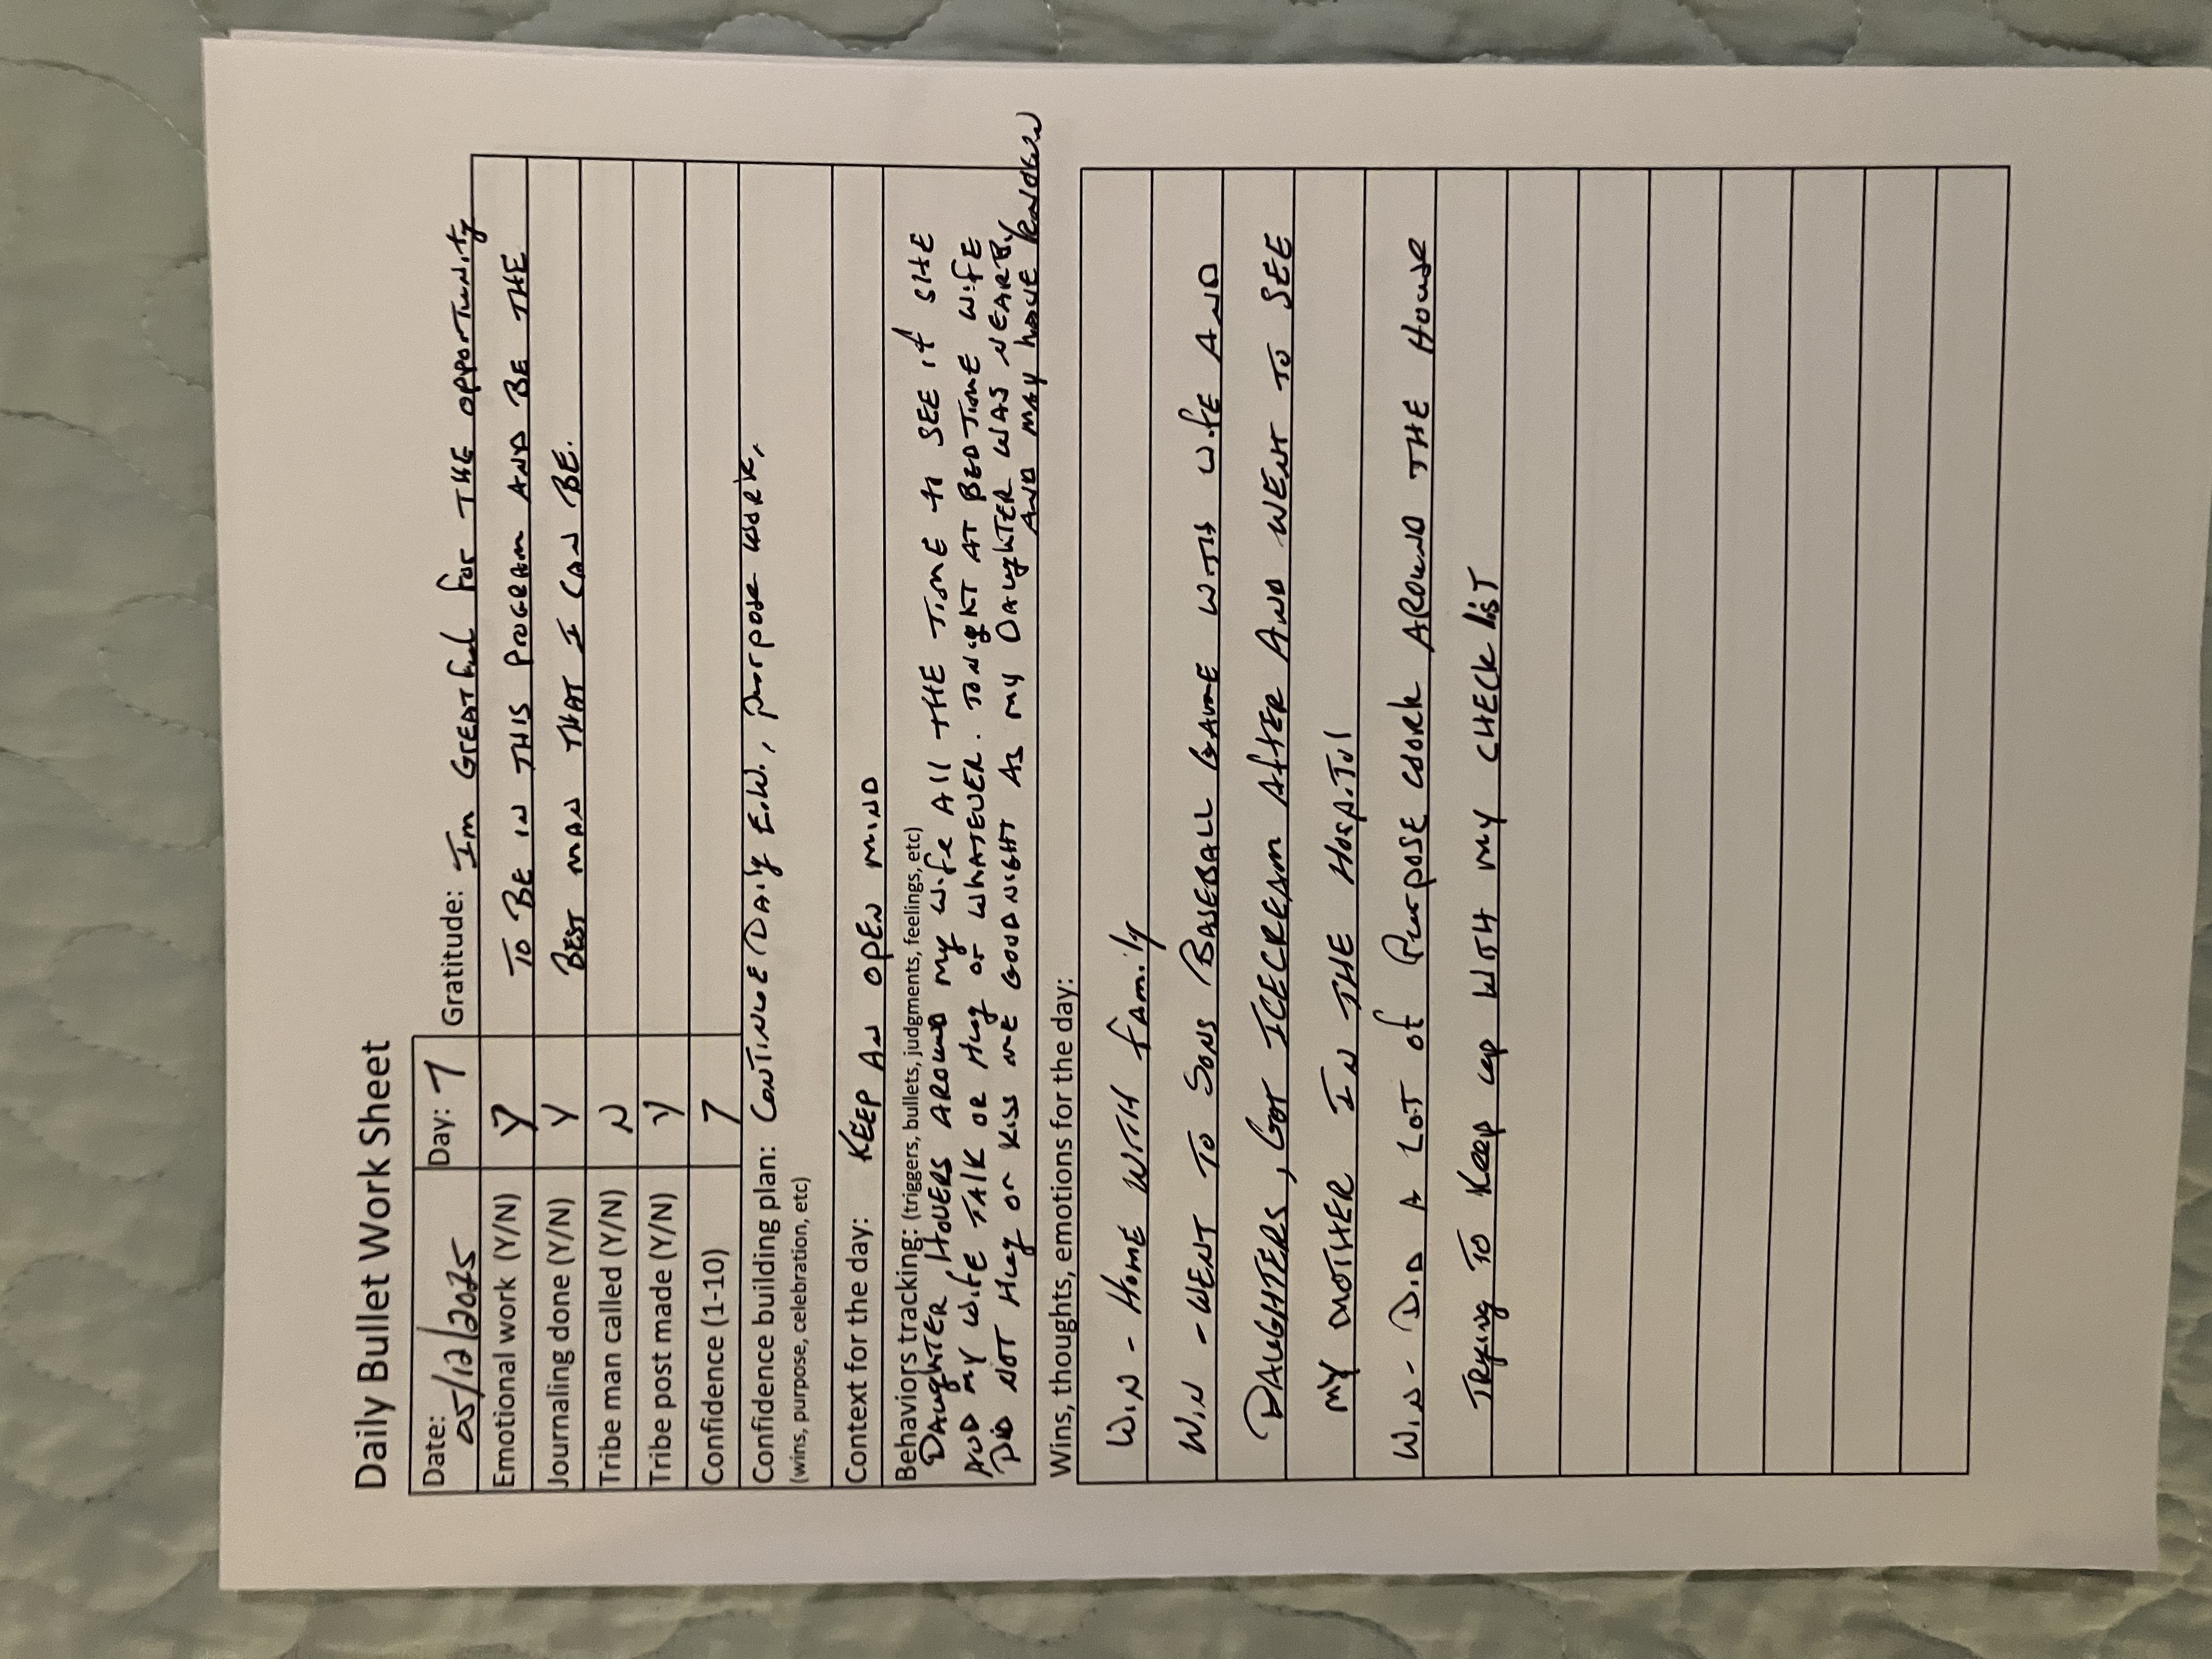 Daily Bullet Work Sheet
Date: 05/12/2025 Day: 7 Gratitude: Im Greatful for THE opportunity
Emotional work (Y/N) Y TO BE IN THIS PROGRAM AND BE THE
Journaling done (Y/N) Y BEST MAN THAT I CAN BE.
Tribe man called (Y/N) N
Tribe post made (Y/N) Y
Confidence (1-10) 7
Confidence building plan: CONTINUE DAily E.W., purpose work,
(wins, purpose, celebration, etc)
Context for the day: KEEP AN OPEN MIND
Behaviors tracking: (triggers, bullets, judgments, feelings, etc)
DAUGHTER HOVERS AROUND my wife All THE TIME to SEE if SHE
AND MY WIFE TALK OR HUG or WHATEVER. TONIGHT AT BEDTIME WIFE
DID NOT HUG or KISS ME GOODNIGHT AS MY DAUGHTER WAS NEARBY
AND MAY HAVE
Wins, thoughts, emotions for the day:
WIN - HOME WITH FAMILY
WIN - WENT TO SONS BASEBALL GAME WITH WIFE AND
DAUGHTERS, GOT ICECREAM AFTER AND WENT TO SEE
MY MOTHER IN THE HOSPITUL
WIN - DID A LOT OF PURPOSE WORK AROUND THE HOUSE
TRYING TO KEEP up WITH MY CHECK list